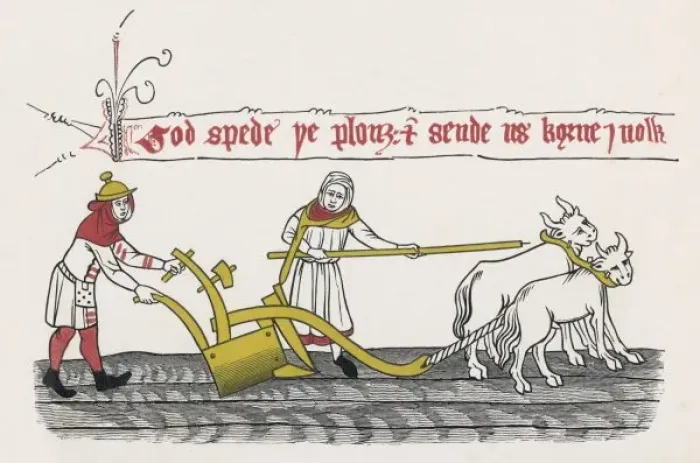 God spede ye plouȝ: ⁊ sende us korne j nolk